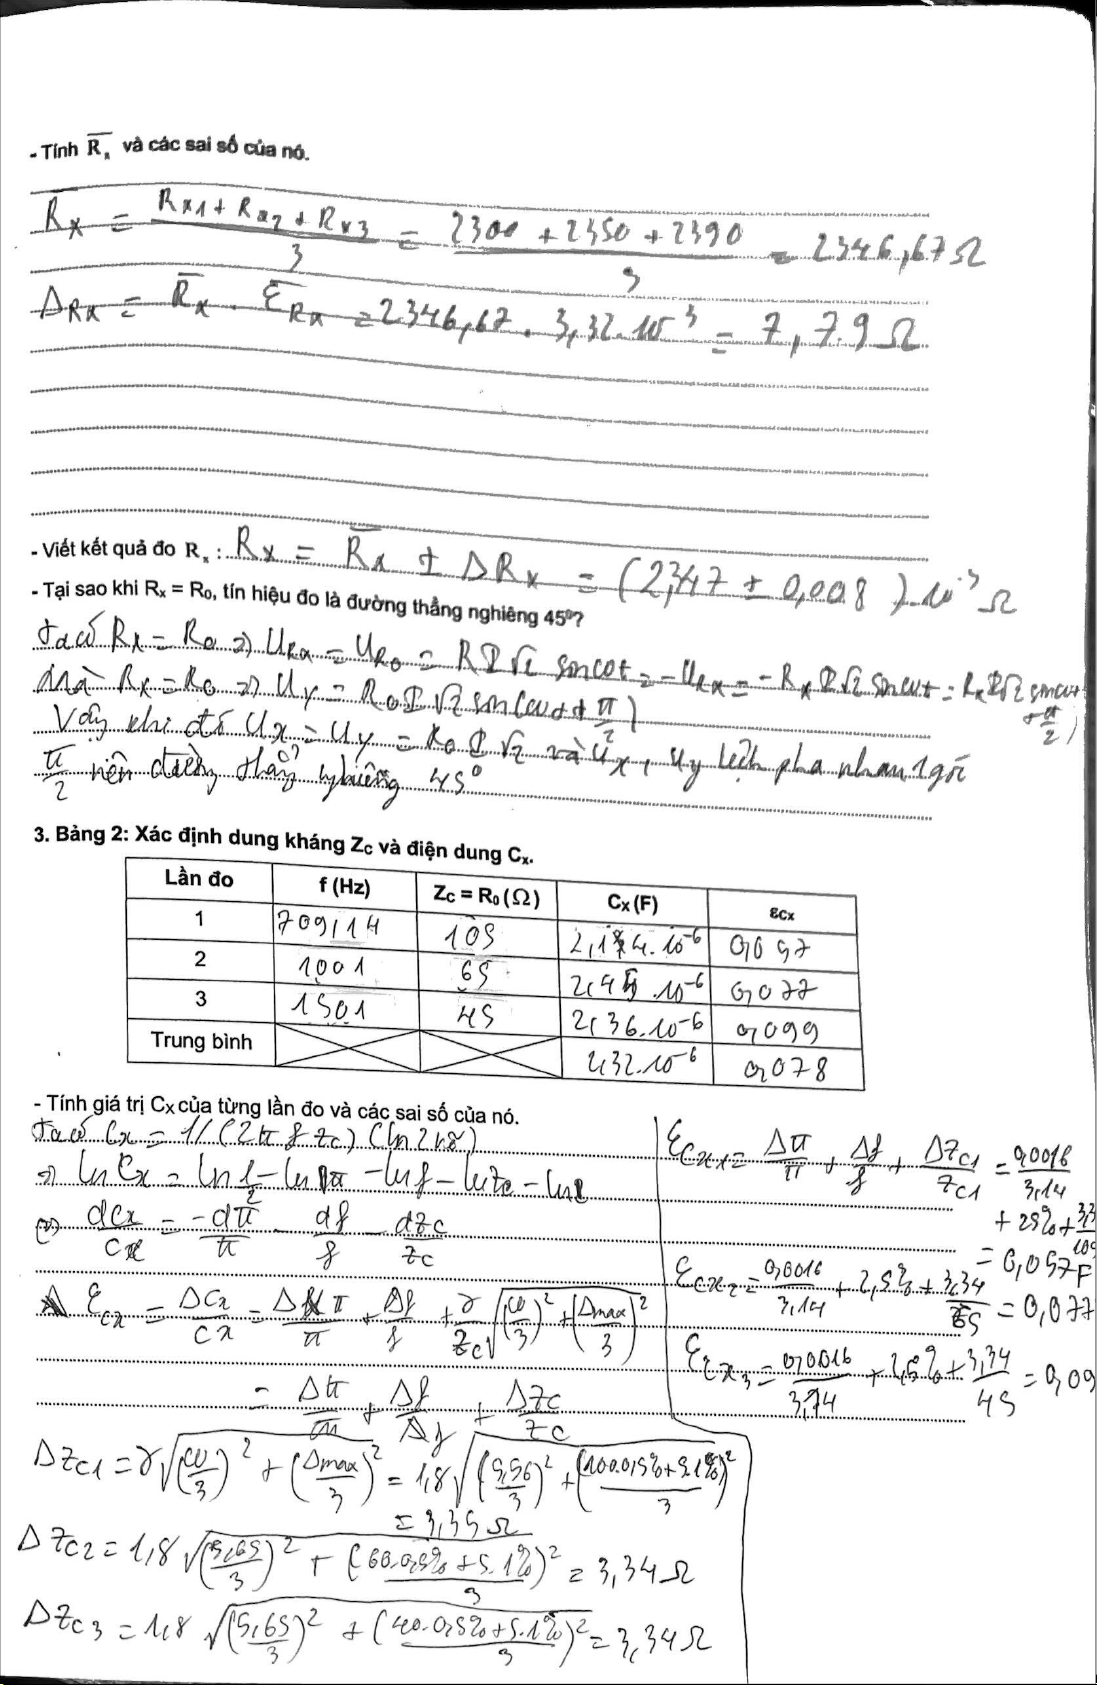 - Tính R̅ₓ và các sai số của nó.
R̅x = (Rx1 + Rx2 + Rx3)/3 = (2300 + 2350 + 2390)/3 = 2346,67Ω
ΔRx = R̅x . ε̅Rx = 2346,67 . 3,32.10⁻³ = 7,79Ω
- Viết kết quả đo Rₓ : Rx = R̅x ± ΔRx = (2,347 ± 0,008).10⁻³ Ω
- Tại sao khi Rₓ = R₀, tín hiệu đo là đường thẳng nghiêng 45⁰?
Ta có Rx = R0 => URx = UR0 = RI√2 sinωt = -URx = -RxI√2 sinωt = RxI√2 sin(ωt + π/2)
Mà Rx = R0 => Uy = R0I√2 sin(ωt + π/2)
Vậy khi đó Ux = Uy = R0I√2 và Ux, Uy lệch pha nhau 1 góc
π/2 nên đường thẳng nghiêng 45°
3. Bảng 2: Xác định dung kháng Zc và điện dung Cₓ.
Lần đo | f (Hz) | Zc = R₀ (Ω) | Cₓ (F) | εCx
1 | 709,14 | 105 | 2,14.10⁻⁶ | 0,057
2 | 1001 | 65 | 2,45.10⁻⁶ | 0,077
3 | 1501 | 45 | 2,36.10⁻⁶ | 0,099
Trung bình | 2,32.10⁻⁶ | 0,078
- Tính giá trị Cx của từng lần đo và các sai số của nó.
Ta có Cx = 1/(2π f Zc)
=> lnCx = ln 1/2 - lnπ - lnf - lnZc
<=> dCx/Cx = -dπ/π - df/f - dZc/Zc
εCx = ΔCx/Cx = Δπ/π + Δf/f + γ/Zc √((ω/3)² + (Δmax/3)²)
= Δπ/π + Δf/Δf + ΔZc/Zc
ΔZc1 = γ√((ω/3)² + (Δmax/3)²) = 1,8√((5,56/3)² + ((100.0,5% + 5.1%)/3)²)
= 3,35Ω
ΔZc2 = 1,8√((5,65/3)² + ((60.0,5% + 5.1%)/3)²) = 3,34Ω
ΔZc3 = 1,8√((5,65/3)² + ((40.0,5% + 5.1%)/3)²) = 3,34Ω
εCx1 = Δπ/π + Δf/f + ΔZc1/Zc1 = 0,0016/3,14
+ 25% + 3,3/105
= 0,057F
εCx2 = 0,0016/3,14 + 2,5% + 3,34/65 = 0,077
εCx3 = 0,0016/3,14 + 2,5% + 3,34/45 = 0,09